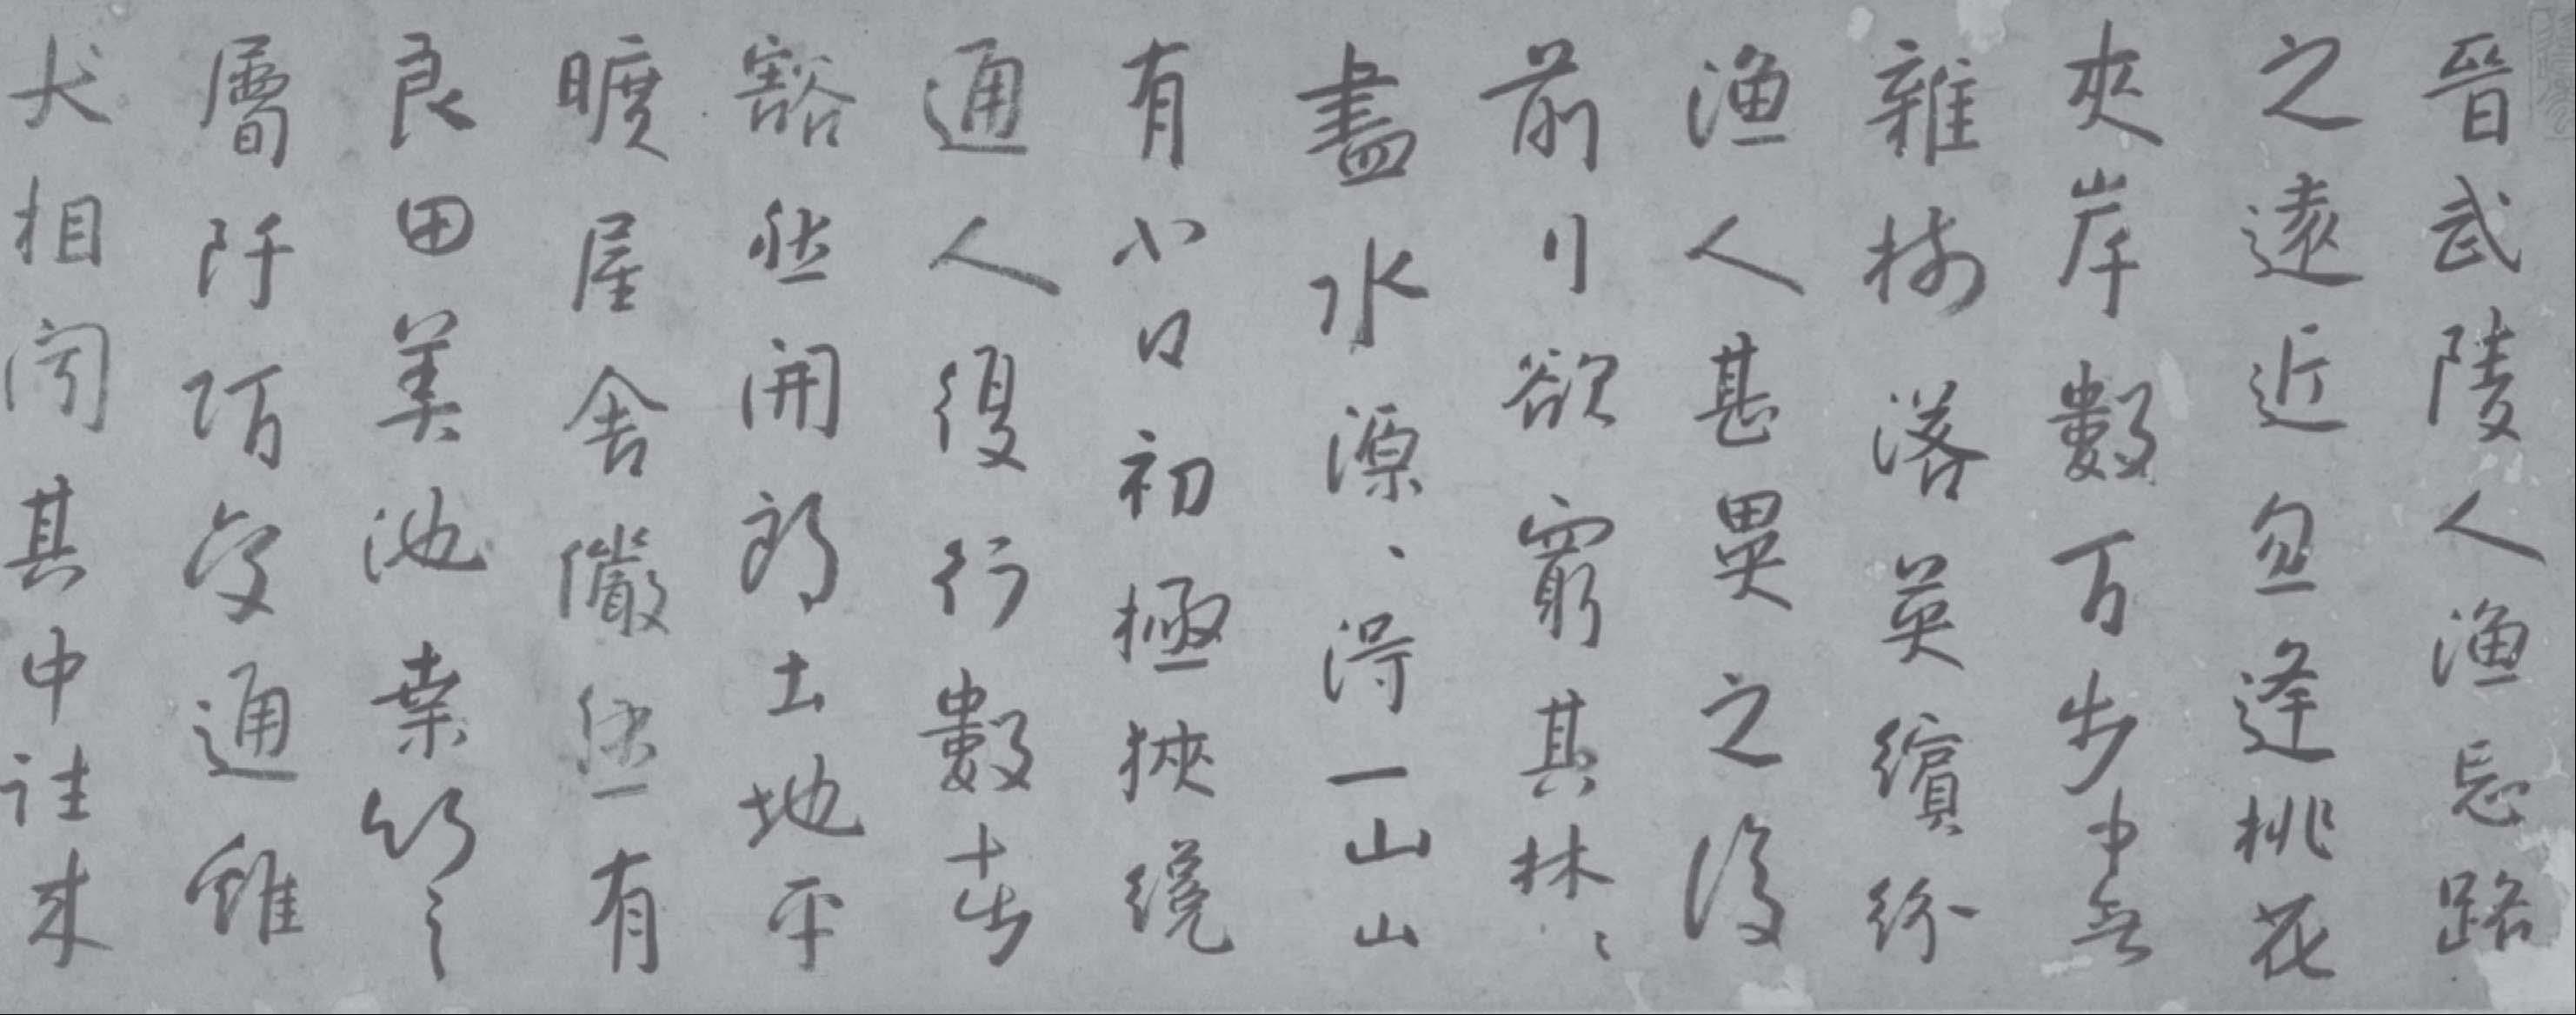 晉武陵人漁忘路
之遠近忽逢桃花
夾岸數百步中無
雜樹落英繽紛
漁人甚異之復
前行欲窮其林〻
盡水源〻得一山山
有小口初極狹纔
通人復行數十步
豁然開朗土地平
曠屋舍儼然有
良田美池桑竹之
層阡陌交通雞
犬相聞其中往來